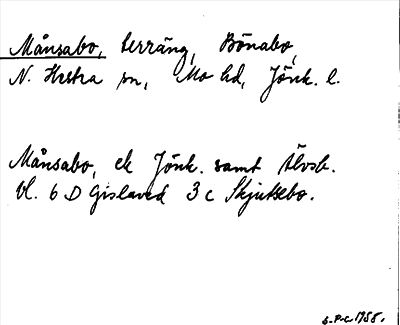 Månsabo, terräng, Bönabo,
N. Hestra sn, Mo hd, Jönk. l.
Månsabo, ek Jönk. samt Älvsb.
bl. 6 D Gislaved 3 c Skjutsebo.
1958.